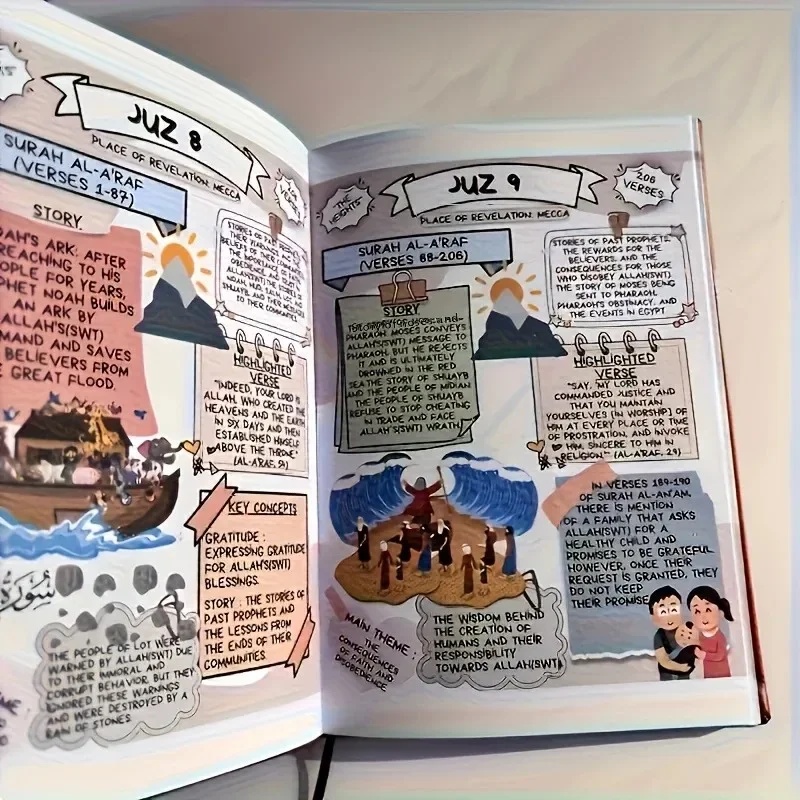 JUZ 8
PLACE OF REVELATION: MECCA
SURAH AL-A'RAF
(VERSES 1-87)
STORY
NOAH'S ARK: AFTER
PREACHING TO HIS
PEOPLE FOR YEARS,
PROPHET NOAH BUILDS
AN ARK BY
ALLAH'S(SWT)
COMMAND AND SAVES
BELIEVERS FROM
GREAT FLOOD.
STORIES OF PAST
TO THEIR COMMUNITIES.
HIGHLIGHTED
VERSE
"INDEED, YOUR LORD IS
ALLAH, WHO CREATED THE
HEAVENS AND THE EARTH
IN SIX DAYS AND THEN
ESTABLISHED HIMSELF
ABOVE THE THRONE"
(AL-A'RAF, 54)
KEY CONCEPTS
GRATITUDE :
EXPRESSING GRATITUDE
FOR ALLAH'S(SWT)
BLESSINGS.
STORY : THE STORIES OF
PAST PROPHETS AND
THE LESSONS FROM
THE ENDS OF THEIR
COMMUNITIES.
سورة
THE PEOPLE OF LOT WERE
WARNED BY ALLAH(SWT) DUE
TO THEIR IMMORAL AND
CORRUPT BEHAVIOR, BUT THEY
IGNORED THESE WARNINGS
AND WERE DESTROYED BY A
RAIN OF STONES
THE
HEIGHTS
JUZ 9
206
VERSES
PLACE OF REVELATION: MECCA
SURAH AL-A'RAF
(VERSES 88-206)
STORY
PHARAOH: MOSES CONVEYS
ALLAH'S(SWT) MESSAGE TO
PHARAOH, BUT HE REJECTS
IT AND IS ULTIMATELY
DROWNED IN THE RED
SEA.THE STORY OF SHUAYB
AND THE PEOPLE OF MIDIAN
THE PEOPLE OF SHUAYB
REFUSE TO STOP CHEATING
IN TRADE AND FACE
ALLAH'S(SWT) WRATH
STORIES OF PAST PROPHETS,
THE REWARDS FOR THE
BELIEVERS, AND THE
CONSEQUENCES FOR THOSE
WHO DISOBEY ALLAH(SWT).
THE STORY OF MOSES BEING
SENT TO PHARAOH,
PHARAOH'S OBSTINACY, AND
THE EVENTS IN EGYPT
HIGHLIGHTED
VERSE
"SAY, 'MY LORD HAS
COMMANDED JUSTICE AND
THAT YOU MAINTAN
YOURSELVES (IN WORSHIP) OF
HIM AT EVERY PLACE OR TIME
OF PROSTRATION, AND INVOKE
HIM, SINCERE TO HIM IN
RELIGION.'"
(AL-A'RAF, 29)
IN VERSES 189-190
OF SURAH AL-AN'AM,
THERE IS MENTION
OF A FAMILY THAT ASKS
ALLAH(SWT) FOR A
HEALTHY CHILD AND
PROMISES TO BE GRATEFUL.
HOWEVER, ONCE THEIR
REQUEST IS GRANTED, THEY
DO NOT KEEP
THEIR PROMISE
MAIN THEME :
THE
CONSEQUENCES
OF FAITH AND
DISOBEDIENCE
THE WISDOM BEHIND
THE CREATION OF
HUMANS AND THEIR
RESPONSIBILITY
TOWARDS ALLAH(SWT)